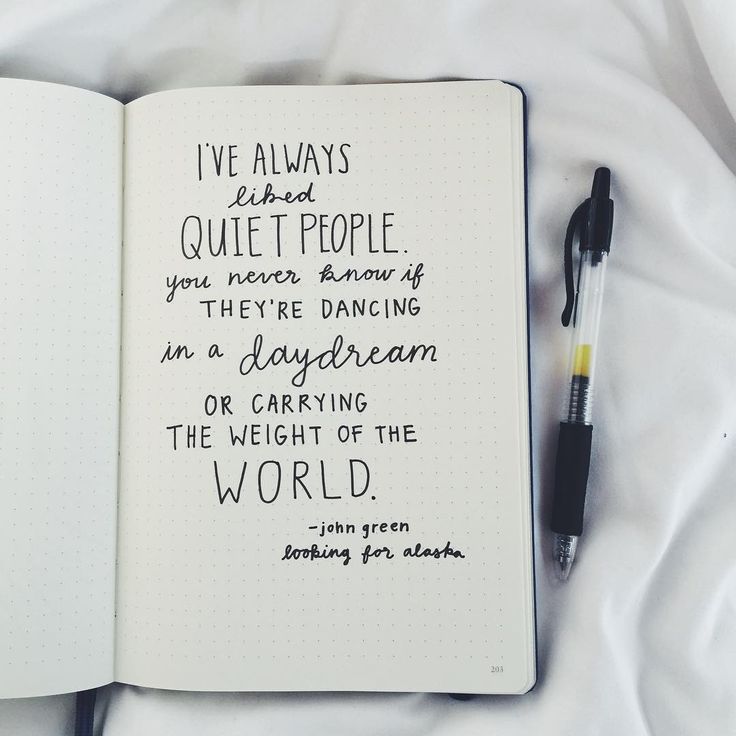 I'VE ALWAYS
liked
QUIET PEOPLE.
you never know if
THEY'RE DANCING
in a daydream
OR CARRYING
THE WEIGHT OF THE
WORLD.
-john green
looking for alaska
203